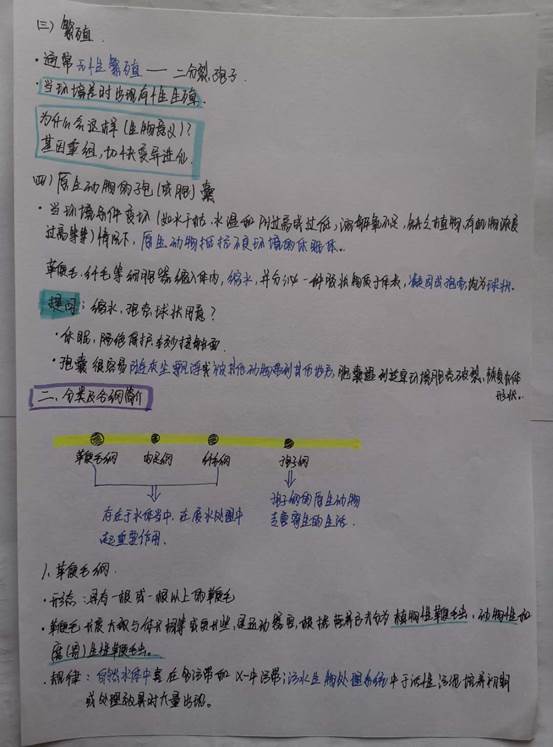 三) 繁殖.
·通常无性繁殖 —— 二分裂孢子.
·当环境差时出现有性生殖.
为什么会这样(生物意义)?
基因重组,加快变异进化.
四) 原生动物的孢(休眠)囊
·当环境条件变坏(如水干枯.水温和PH过高或过低,溶解氧不足,缺乏植物,有机物浓度
过高等等)情况下,原生动物抵抗不良环境的休眠体。
鞭毛.纤毛等细胞器缩入体内,缩水,并分泌一种胶状物质于体表,凝固成孢壳均为球状.
提问:缩水,孢壳球状用意?
·休眠,降低保护壳的接触面
·孢囊很容易随灰尘飘浮或被其他动物带到其他地方,孢囊遇到适宜环境胞壳破裂,恢复虫体
形状.
二、分类及各纲简介
鞭毛纲 肉足纲 纤毛纲 孢子纲
存在于水体当中,在废水处理中
起重要作用.
孢子纲的原生动物
主要寄生的生活.
1.鞭毛纲.
·形态:具有一根或一根以上的鞭毛
·鞭毛长度大致与体长相等或更长些,是运动器官,根据营养方式分为植物性鞭毛虫,动物性和
腐(寄)生性鞭毛虫。
·规律:自然水体中喜在多污带和α-中污带;污水生物处理系统中于活性污泥培养初期
或处理效果差时大量出现。